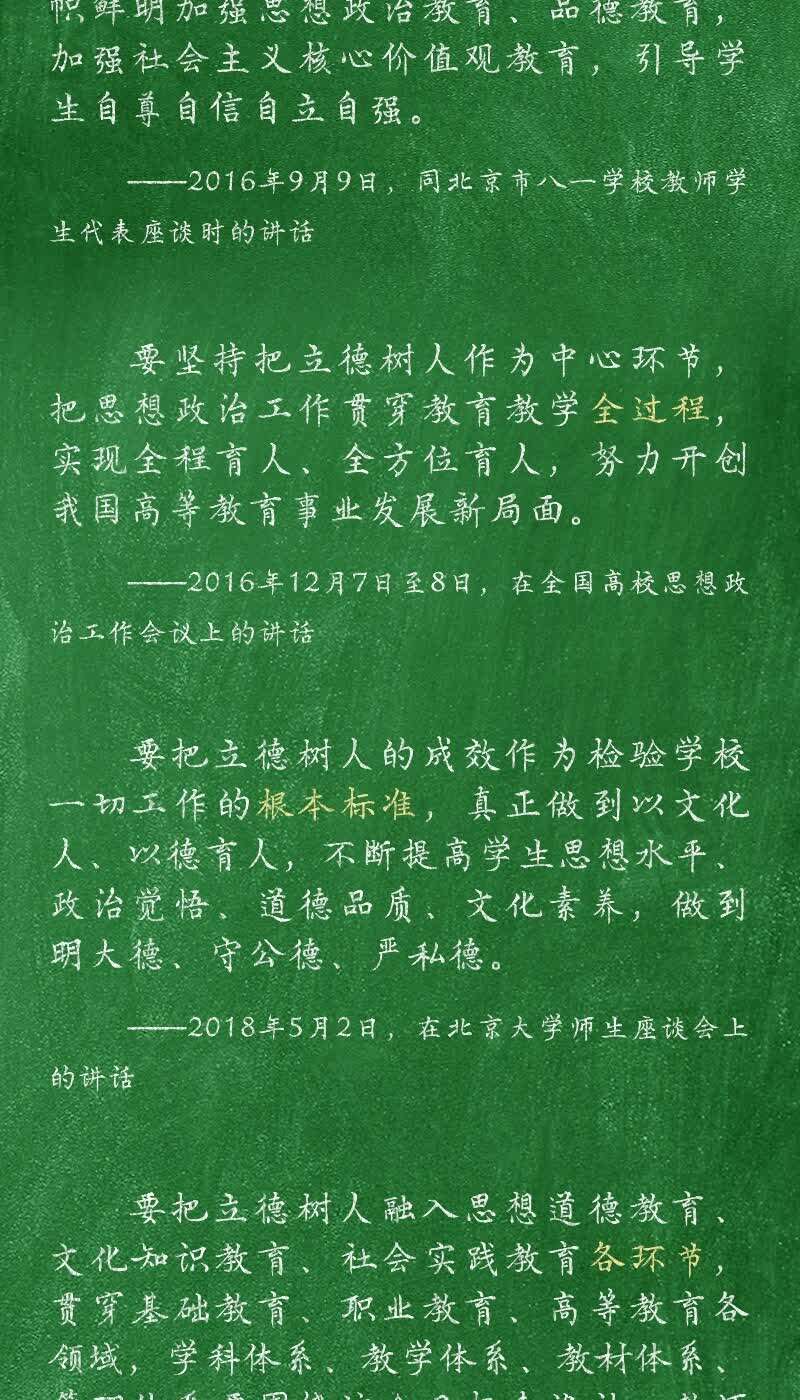 帜鲜明加强思想政治教育、品德教育，
加强社会主义核心价值观教育，引导学
生自尊自信自立自强。
——2016年9月9日，同北京市八一学校教师学
生代表座谈时的讲话
要坚持把立德树人作为中心环节，
把思想政治工作贯穿教育教学全过程，
实现全程育人、全方位育人，努力开创
我国高等教育事业发展新局面。
——2016年12月7日至8日，在全国高校思想政
治工作会议上的讲话
要把立德树人的成效作为检验学校
一切工作的根本标准，真正做到以文化
人、以德育人，不断提高学生思想水平、
政治觉悟、道德品质、文化素养，做到
明大德、守公德、严私德。
——2018年5月2日，在北京大学师生座谈会上
的讲话
要把立德树人融入思想道德教育、
文化知识教育、社会实践教育各环节，
贯穿基础教育、职业教育、高等教育各
领域，学科体系、教学体系、教材体系、